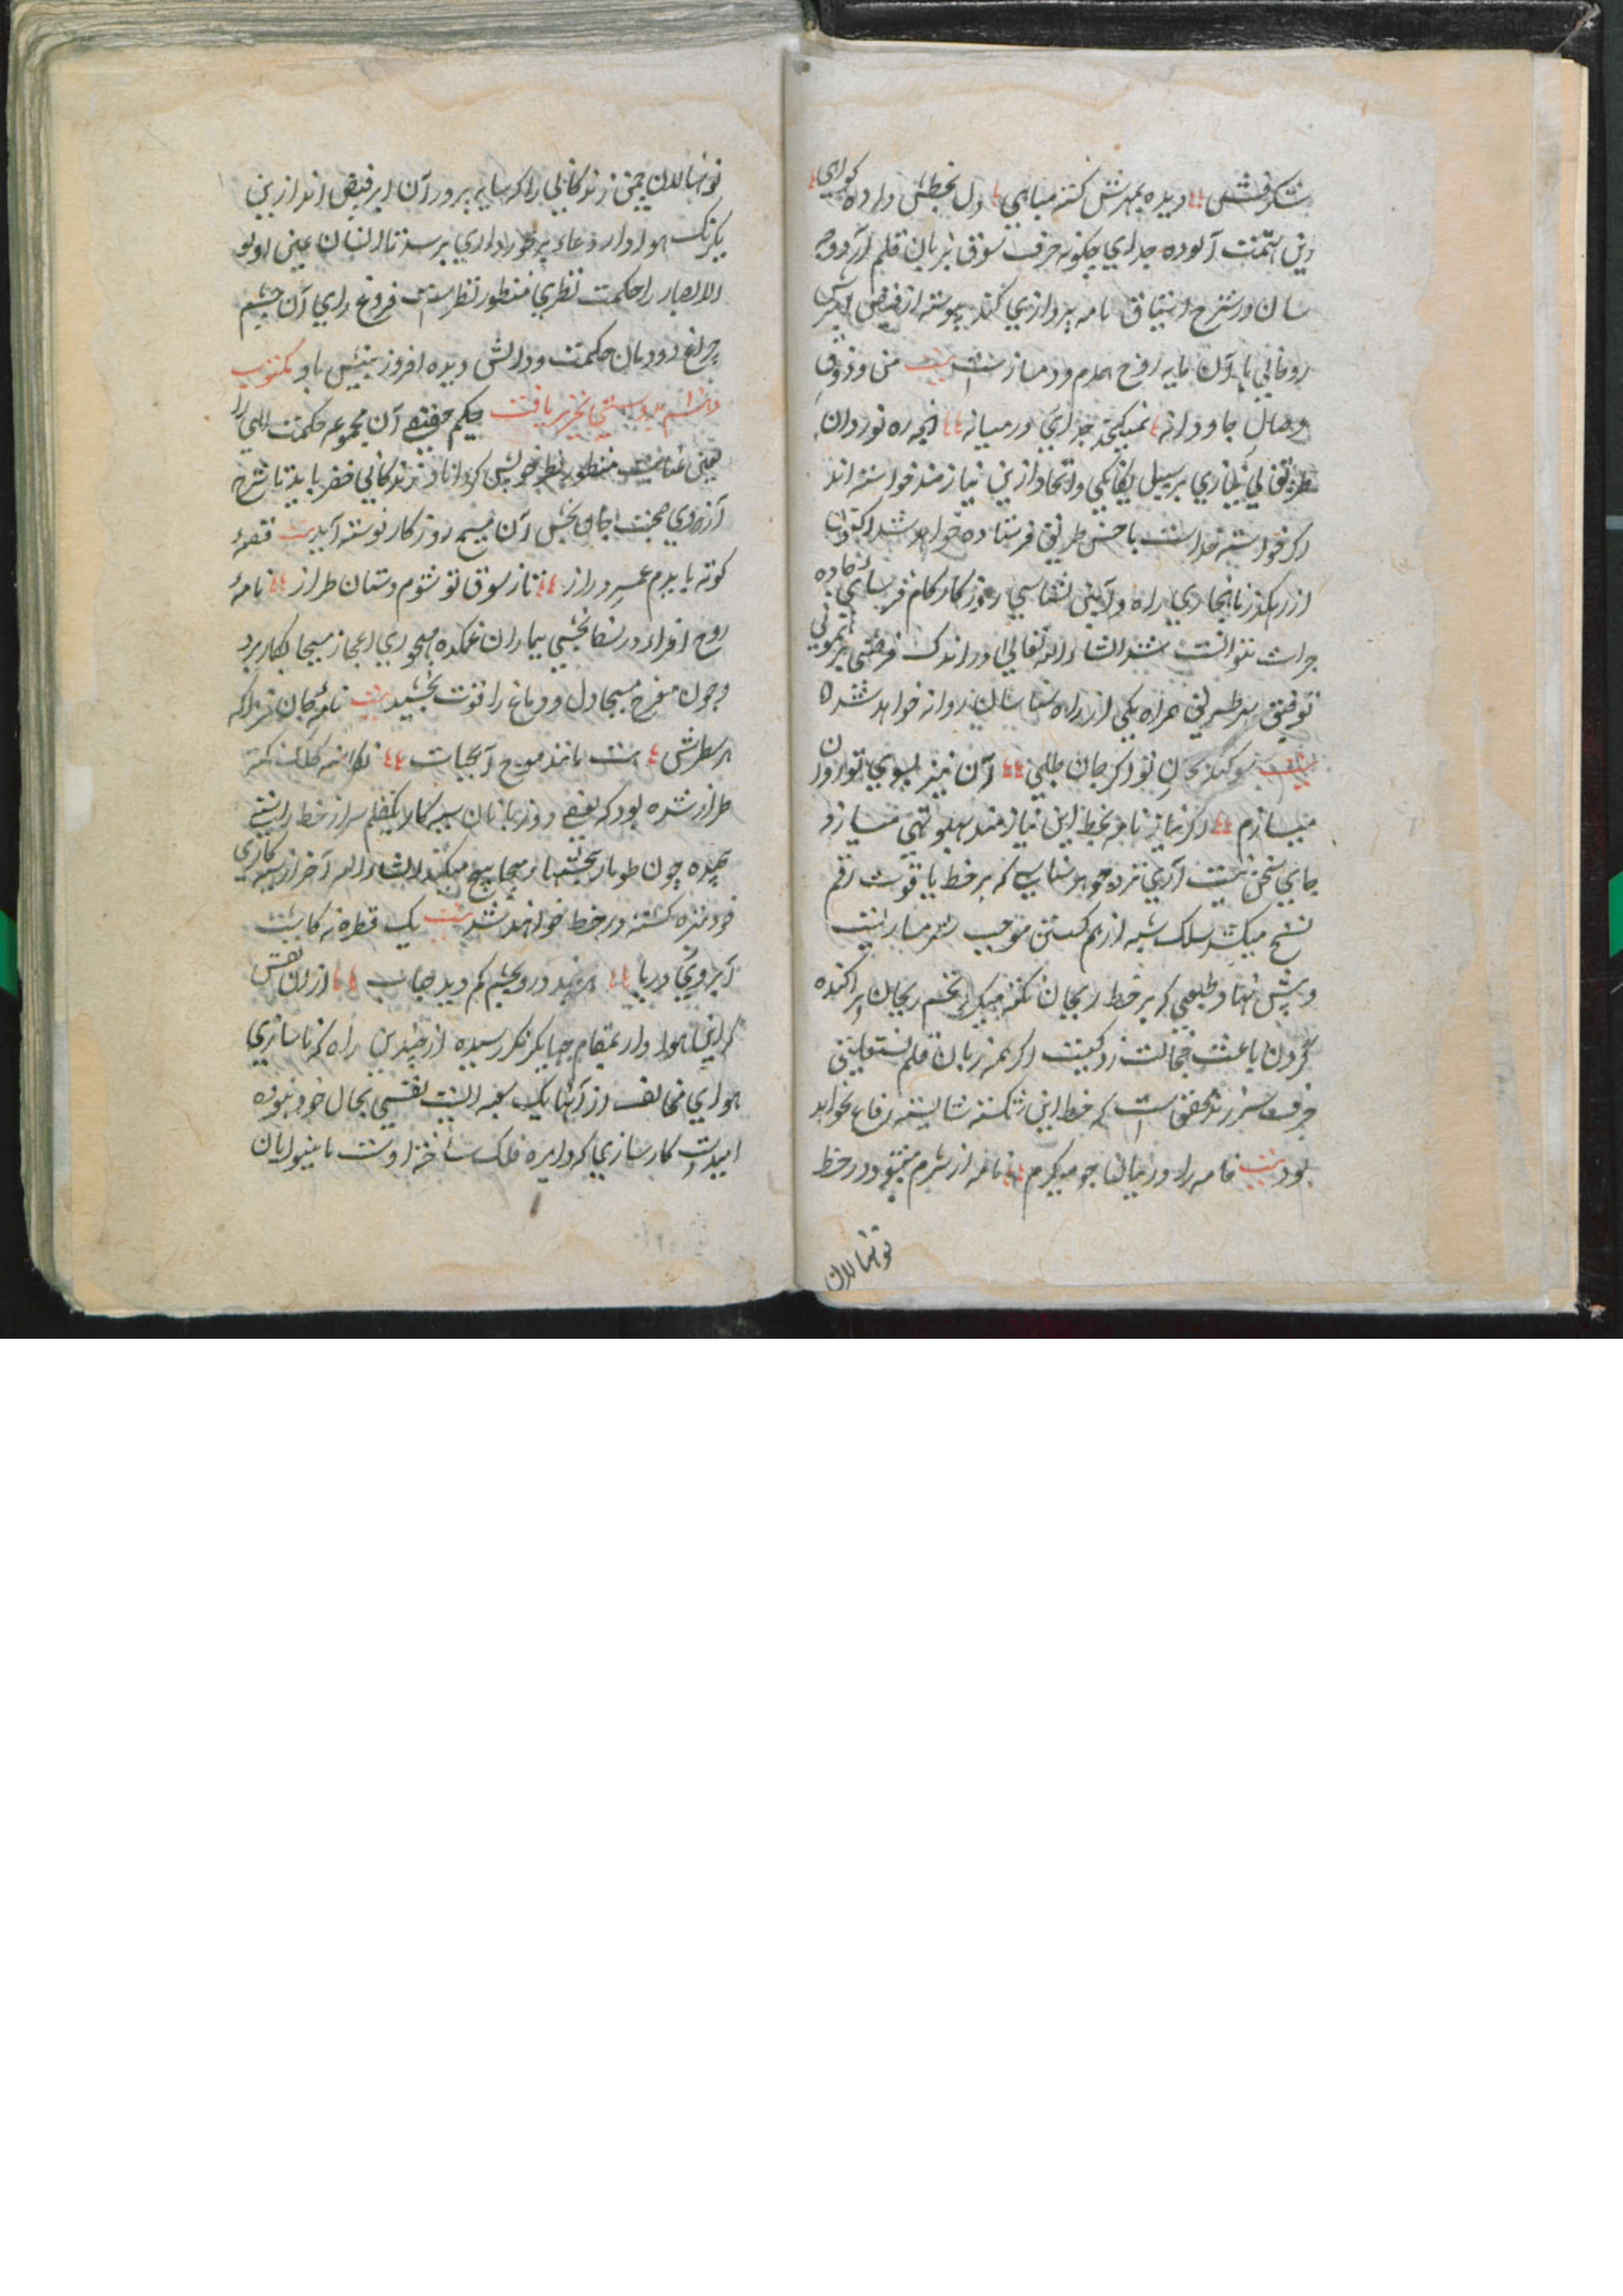 شنکرفش دیده بمهرش کشته مینای دل بخطش داده کواهی
این تهمت آلوده جدای چکونه حرف شوق بزبان قلم آرد و چه
سان در شرح اشتیاق نامه پردازی کند پیوسته از فیض
روحانی با آن مایه روح همدم و دمساز ست بیت من و ذوق
وصال جاودانه نمیکنجد جدای در میانه انچه ره نوردان
طریق بی نیازی بر سبیل یکانکی و اتحاد ازین نیازمند خواسته اند
اکر خواسته خداست باحسن طریق فرستاده خواهد شد اکنون
از رهکذر ناهنجاری راه و آیین نشناسی روزکار کام فرسای جاده
جرات نتوانست شد انشاء الله تعالی در اندک فرصتی برهنمونی
توفیق بهر طریق همراه یکی از راه شناسان روانه خواهد شد
بیت سوکند بجان تو اکر جان طلبی آن نیز بسوی تو روان
میسازم اکر نیاز نامه بخط این نیازمند پهلو تهی میسازد
جای سخن نیست آری نزد جوهر شناسی که بر خط یاقوت رقم
نسخ میکشد سلک شبه از هم کسستن موجب شرمساریست
و پیش نهاد طبعی که بر خط ریحان نکته میکیرد تخم ریحان پراکنده
کردن باعث خجالت زدکیست اکر همه زبان قلم نستعلیق
حرف سر زند محقق است که خط این شکسته شایسته رقاع نخواهد
بود بیت خامه را در میانها جو میکرم نامه از شرم میشود در خط
نونهالان
نونهالان چمن زندکانی را که سایه پرور آن ابر فیض اند ازین
یکرنک هوادار دعاء برخورداری برسد تا انسان عین اولو
الابصار را حکمت نظری منظور نظرست فروغ رای آن چشم
چراغ دودمان حکمت و دانش دیده افروز بینش باد مکتوب
حکیم حقیقی آن مجموعه حکمت الهی را
بعین عنایت منظور نظر خویش کرداناد زندکانی خضر باید تا شرح
آرزوی صحبت جان بخش آن مسیح روزکار نوشته آید بیت قصهٔ
کوته یا بدم عمر دراز تا ز شوق تو شوم دستان طراز نامهٔ
روح افزا در شفا بخشی بیماران غمکده مهجوری اعجاز مسیحا بکار برد
و چون مفرح مسیحا دل و دماغ را قوت بخشید بیت نامهٔ جان فزا که
هر سطرش هست مانند موج آبحیات نکاشته کلک نکته
طراز شده بود که بعضی روز بانان سیه کار یکقلم سر از خط راستی
پیچیده چون طومار بحبسها بر میجا پیچ میکنند انشاء الله آخر از سیه کاری
خود تنزه کشته در خط خواهند شد بیت یک قطره نه کاست
آبروی دریا هرچند درو بچشم کم دید حباب ازان نفس
کرانی هوادار بمقام جهانکیر نکر رسیده از چندین راه که ناسازی
هوای مخالف از آنها یک شعبه است نفسی بحال خود نبوده
امیدست کارسازی که دایره فلک ساخته اوست با بینوایان